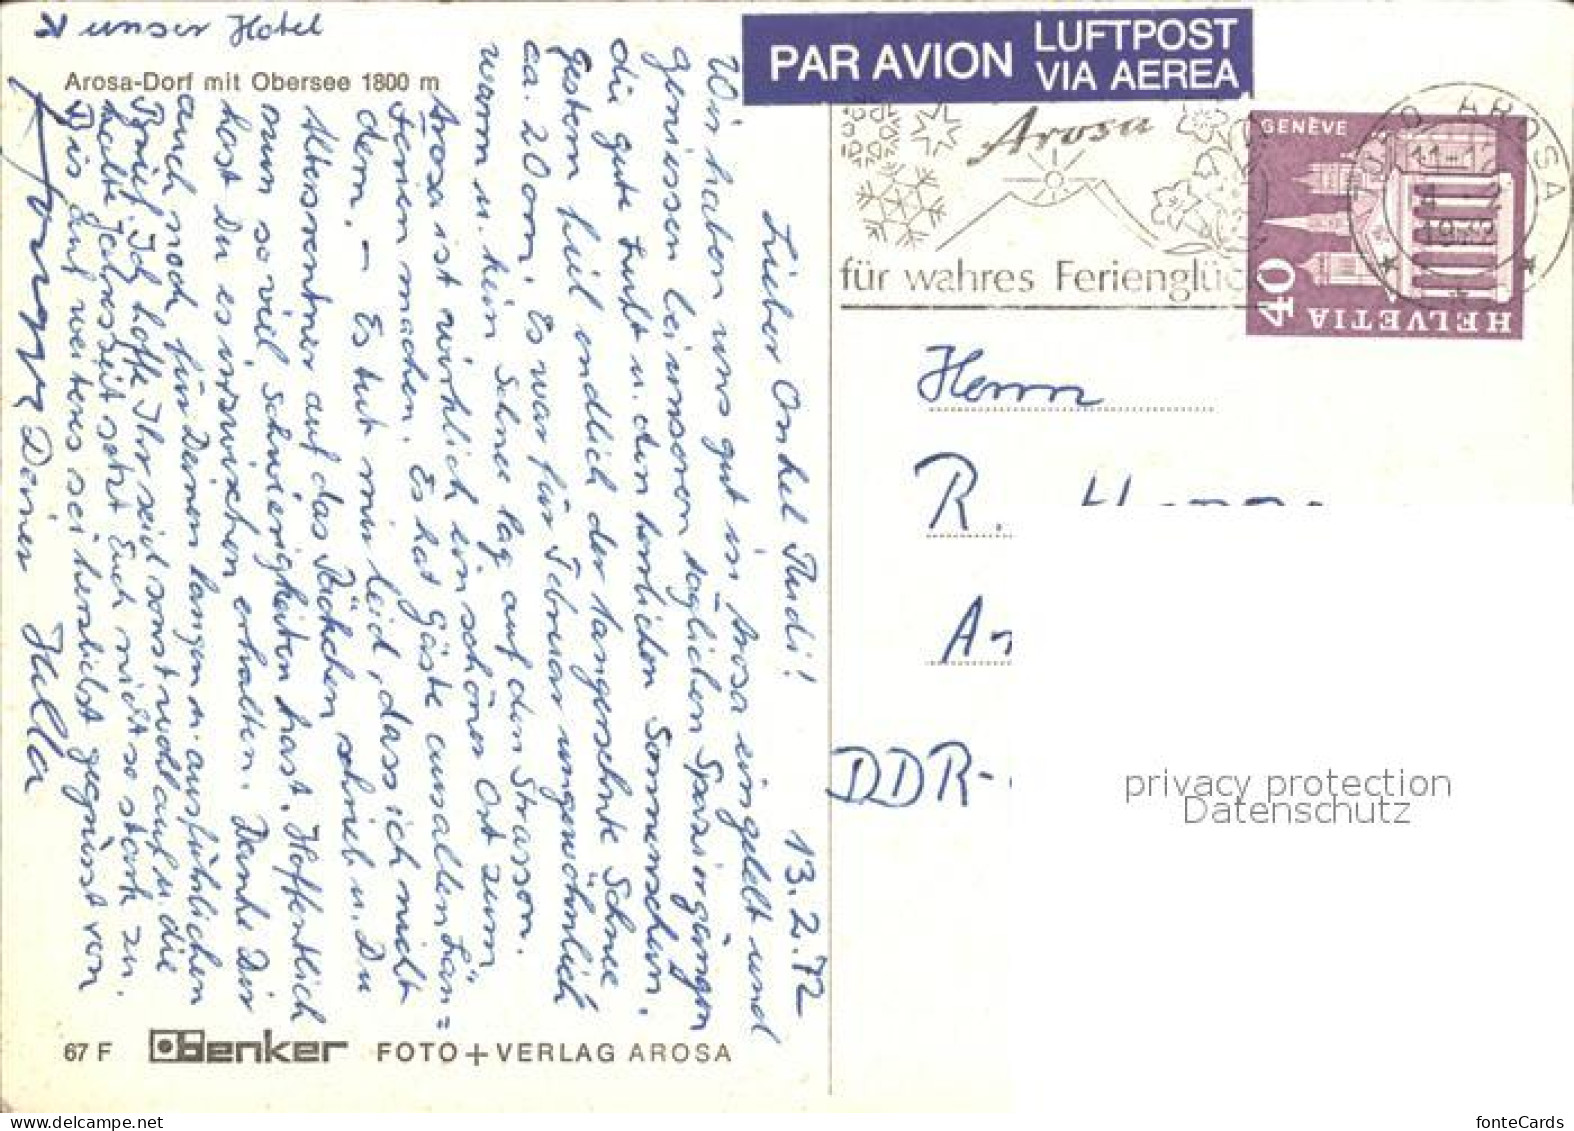 unser Hotel
Arosa-Dorf mit Obersee 1800 m
PAR AVION
LUFTPOST
VIA AEREA
Arosa
für wahres Ferienglüc
AROSA
11-12
GENÈVE
40
HELVETIA
Lieber Onkel Rudi! 13.2.72
Wir haben uns gut in Arosa eingelebt und
geniessen bei unseren täglichen Spaziergängen
die gute Luft u. den herrlichen Sonnenschein.
Gestern fiel endlich der langersehnte Schnee
ca. 20 cm. Es war für Februar ungewöhnlich
warm u. kein Schnee lag auf den Strassen.
Arosa ist wirklich ein schöner Ort zum
Ferien machen. Es hat Gäste aus allen Län=
dern. – Es tut mir leid, dass ich nicht
Altersrentner auf das Päckchen schrieb u. Du
nun so viel Schwierigkeiten hast. Hoffentlich
hast Du es inzwischen erhalten. Danke Dir
auch noch für Deinen langen u. ausführlichen
Brief. Ich hoffe Ihr seid sonst wohlauf u. die
kalte Jahreszeit setzt Euch nicht so stark zu.
Bis auf weiteres sei herzlichst gegrüsst von
Deiner Hella
Herrn
R.
DDR-
67 F
Benker FOTO + VERLAG AROSA
privacy protection
Datenschutz
fonteCards